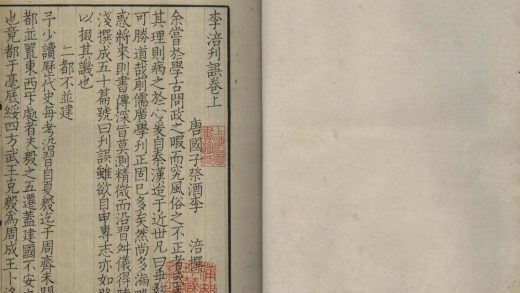 李涪刊誤卷上
唐國子祭酒李 涪撰
余嘗於學古問政之暇而究風俗之不正者或
其理則病之於心爰自秦漢迨于近世凡曰乖
可勝道哉前儒廣學刊正固已多矣然尚多漏略
惑將來則書傳深旨莫測精微而沿習舛儀得陳
淺撰成五十篇號曰刊誤雖欲自申專志亦如
以掇其譏也
二都不並建
予少讀歷代史每考沿習自夏殷迄于周齊未聞
都並置東西互處者夫殷之五遷蓋建國不安
也竟都于亳厎綏四方武王克殷爲周成王卜洛